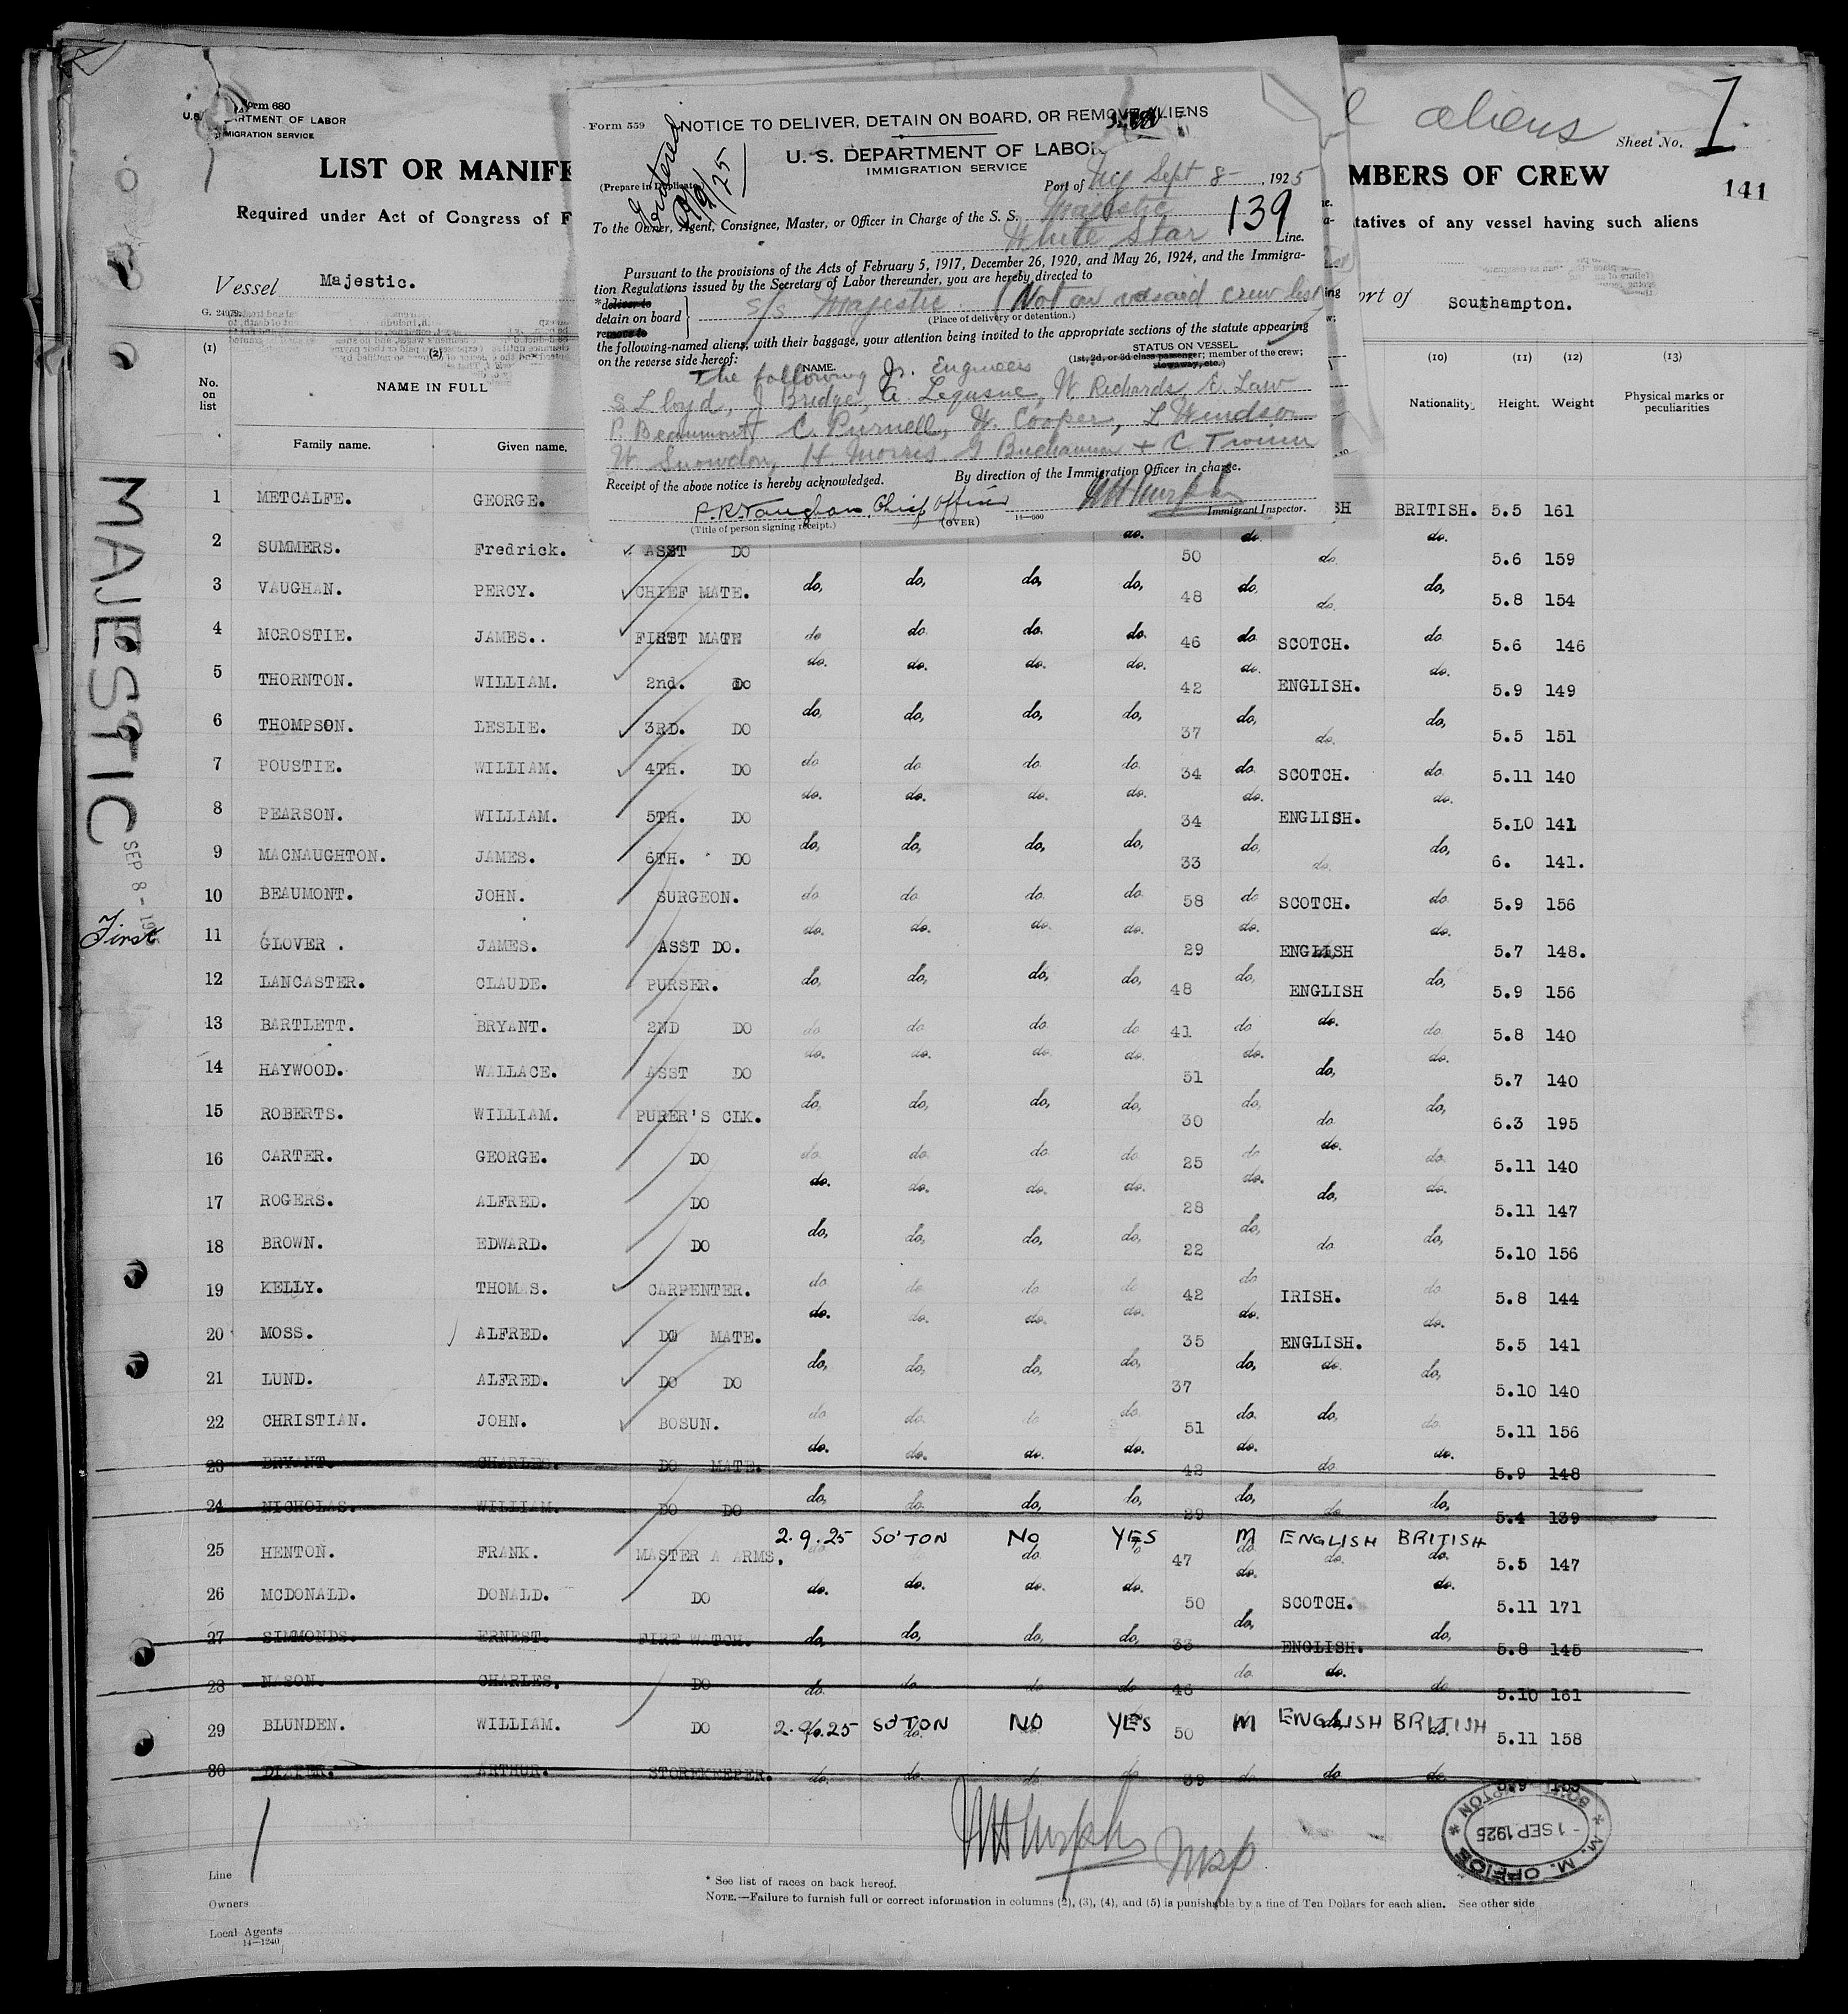 Form 680
U.S. DEPARTMENT OF LABOR
IMMIGRATION SERVICE
LIST OR MANIF
MBERS OF CREW
aliens
Sheet No. 1
141
Required under Act of Congress of F
tatives of any vessel having such aliens
Vessel Majestic.
ort of Southampton.
Form 559
NOTICE TO DELIVER, DETAIN ON BOARD, OR REMOVE ALIENS
U. S. DEPARTMENT OF LABOR
IMMIGRATION SERVICE
(Prepare in Duplicate)
Entered 9/9/25
Port of NY Sept 8-, 1925
To the Owner, Agent, Consignee, Master, or Officer in Charge of the S. S. Majestic
139
White Star Line.
Pursuant to the provisions of the Acts of February 5, 1917, December 26, 1920, and May 26, 1924, and the Immigra-
tion Regulations issued by the Secretary of Labor thereunder, you are hereby directed to
*deliver to
detain on board
remove to
s/s Majestic (Not on visaid crew list)
(Place of delivery or detention.)
the following-named aliens, with their baggage, your attention being invited to the appropriate sections of the statute appearing
on the reverse side hereof:
NAME.
STATUS ON VESSEL
(1st, 2d, or 3d class passenger; member of the crew; stowaway, etc.)
The following Jr. Engineers
S Lloyd, J Bridge, A Lequsne, W Richards, E. Law
P. Beaumont C. Purnell, W. Cooper, L Windsor
W. Snowdon, H. Morris G Buchannan + C Twinn
By direction of the Immigration Officer in charge.
Receipt of the above notice is hereby acknowledged.
P.R. Vaughan, Chief Officer
(Title of person signing receipt.)
(OVER)
14—660
Immigrant Inspector.
(1) (2) (10) (11) (12) (13)
No. on list
NAME IN FULL
Family name. Given name.
Nationality. Height. Weight Physical marks or peculiarities
MAJESTIC
SEP 8 - 1925
First
1 METCALFE. GEORGE. SH BRITISH. 5.5 161
2 SUMMERS. Fredrick. ASST DO do. 50 do. do. do. 5.6 159
3 VAUGHAN. PERCY. CHIEF MATE. do, do, do, do, 48 do, do. do, 5.8 154
4 MCROSTIE. JAMES.. FIRST MATE do do. do. do. 46 do SCOTCH. do 5.6 146
5 THORNTON. WILLIAM. 2nd. Do do. do. do. do. 42 do. ENGLISH. do. 5.9 149
6 THOMPSON. LESLIE. 3RD. DO do, do, do, do, 37 do, do. do, 5.5 151
7 POUSTIE. WILLIAM. 4TH. DO do do do. do. 34 do. SCOTCH. do 5.11 140
8 PEARSON. WILLIAM. 5TH. DO do. do. do. do. 34 do. ENGLISH. do. 5.10 141
9 MACNAUGHTON. JAMES. 6TH. DO do, do, do, do, 33 do, do. do, 6. 141.
10 BEAUMONT. JOHN. SURGEON. do do do. do. 58 do SCOTCH. do 5.9 156
11 GLOVER . JAMES. ASST DO. do. do. do. do. 29 do. ENGLISH do. 5.7 148.
12 LANCASTER. CLAUDE. PURSER. do, do, do, do, 48 do, ENGLISH do, 5.9 156
13 BARTLETT. BRYANT. 2ND DO do do do. do 41 do do. do 5.8 140
14 HAYWOOD. WALLACE. ASST DO do. do. do. do. 51 do. do, do. 5.7 140
15 ROBERTS. WILLIAM. PURER'S CLK. do, do, do, do, 30 do, do do, 6.3 195
16 CARTER. GEORGE. DO do do. do do 25 do do. do. 5.11 140
17 ROGERS. ALFRED. DO do. do. do. do. 28 do. do, do. 5.11 147
18 BROWN. EDWARD. DO do, do, do, do, 22 do, do do, 5.10 156
19 KELLY. THOMAS. CARPENTER. do do do do 42 do IRISH. do 5.8 144
20 MOSS. ALFRED. DO MATE. do. do. do. do. 35 do. ENGLISH. do. 5.5 141
21 LUND. ALFRED. DO DO do, do, do, do, 37 do, do. do, 5.10 140
22 CHRISTIAN. JOHN. BOSUN. do do. do do. 51 do. do, do. 5.11 156
23 BRYANT. CHARLES. DO MATE. do. do. do. do. 42 do. do do. 5.9 148
24 NICHOLAS. WILLIAM. DO DO do, do. do, do, 29 do, do do, 5.4 139
25 HENTON. FRANK. MASTER A ARMS. 2.9.25 SO'TON NO YES 47 M ENGLISH BRITISH 5.5 147
26 MCDONALD. DONALD. DO do. do. do. do. 50 do. SCOTCH. do. 5.11 171
27 SIMMONDS. ERNEST. FIRE WATCH. do, do, do, do, 33 do, ENGLISH. do, 5.8 145
28 NASON. CHARLES. DO do. do do do 46 do. do. do 5.10 161
29 BLUNDEN. WILLIAM. DO 2.9.25 SO'TON NO YES 50 M ENGLISH BRITISH 5.11 158
30 DIAPER. ARTHUR. STOREKEEPER. do. do. do do 39 do do do.
M. M. OFFICE
-1 SEP 1925
SOUTHAMPTON
Line
Owners
Local Agents
14—1240
* See list of races on back hereof.
NOTE.—Failure to furnish full or correct information in columns (2), (3), (4), and (5) is punishable by a fine of Ten Dollars for each alien. See other side